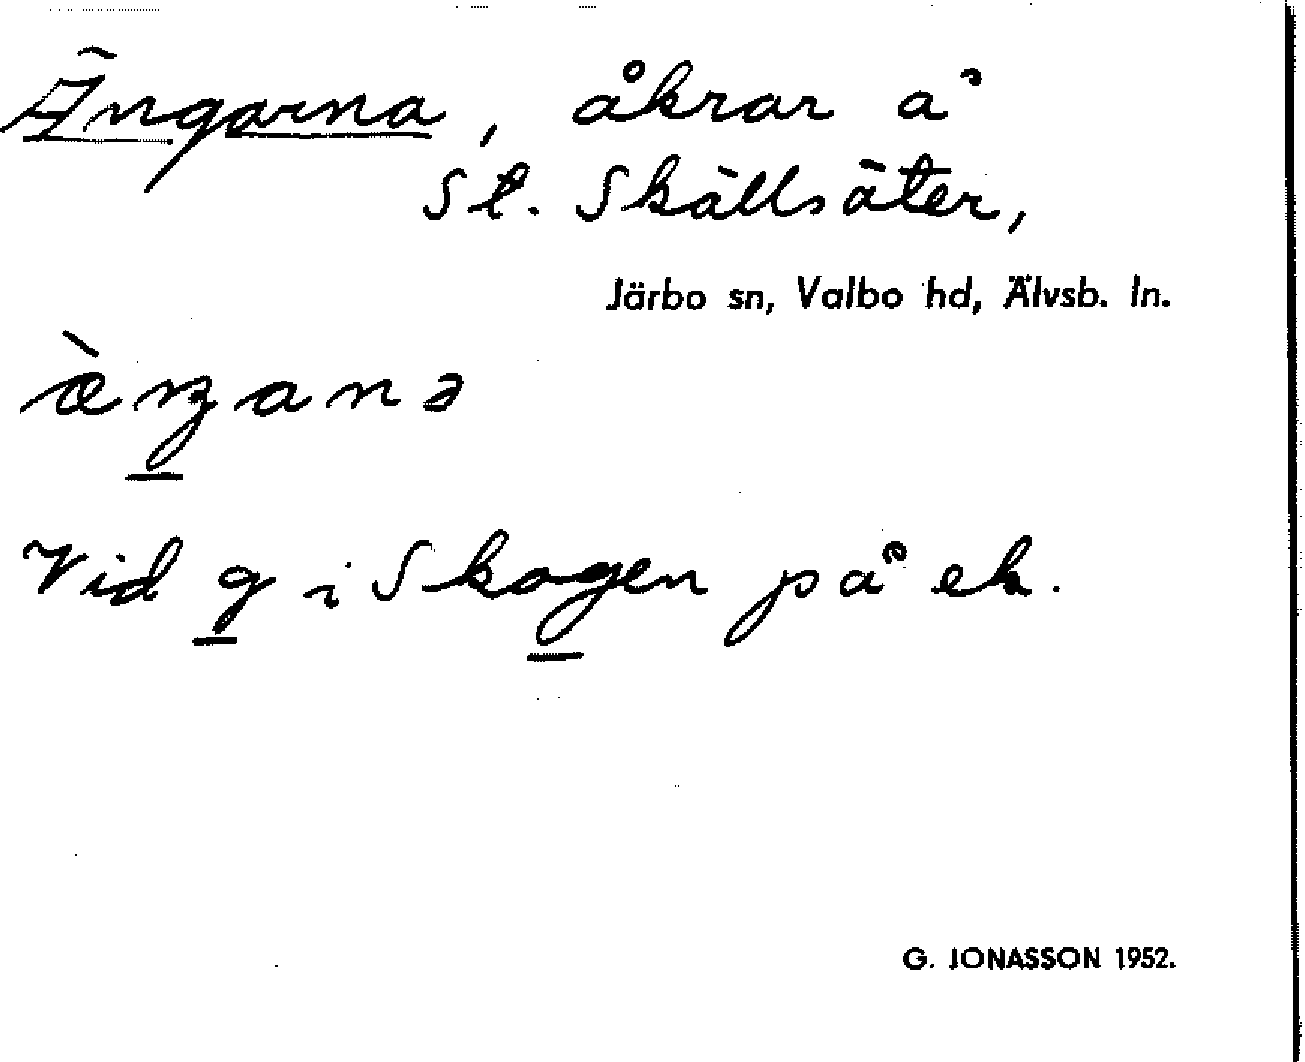 Ängarna, åkrar å
St. Skällsäter,
Järbo sn, Valbo hd, Älvsb. ln.
Vid g i Skogen på ek.
G. JONASSON 1952.